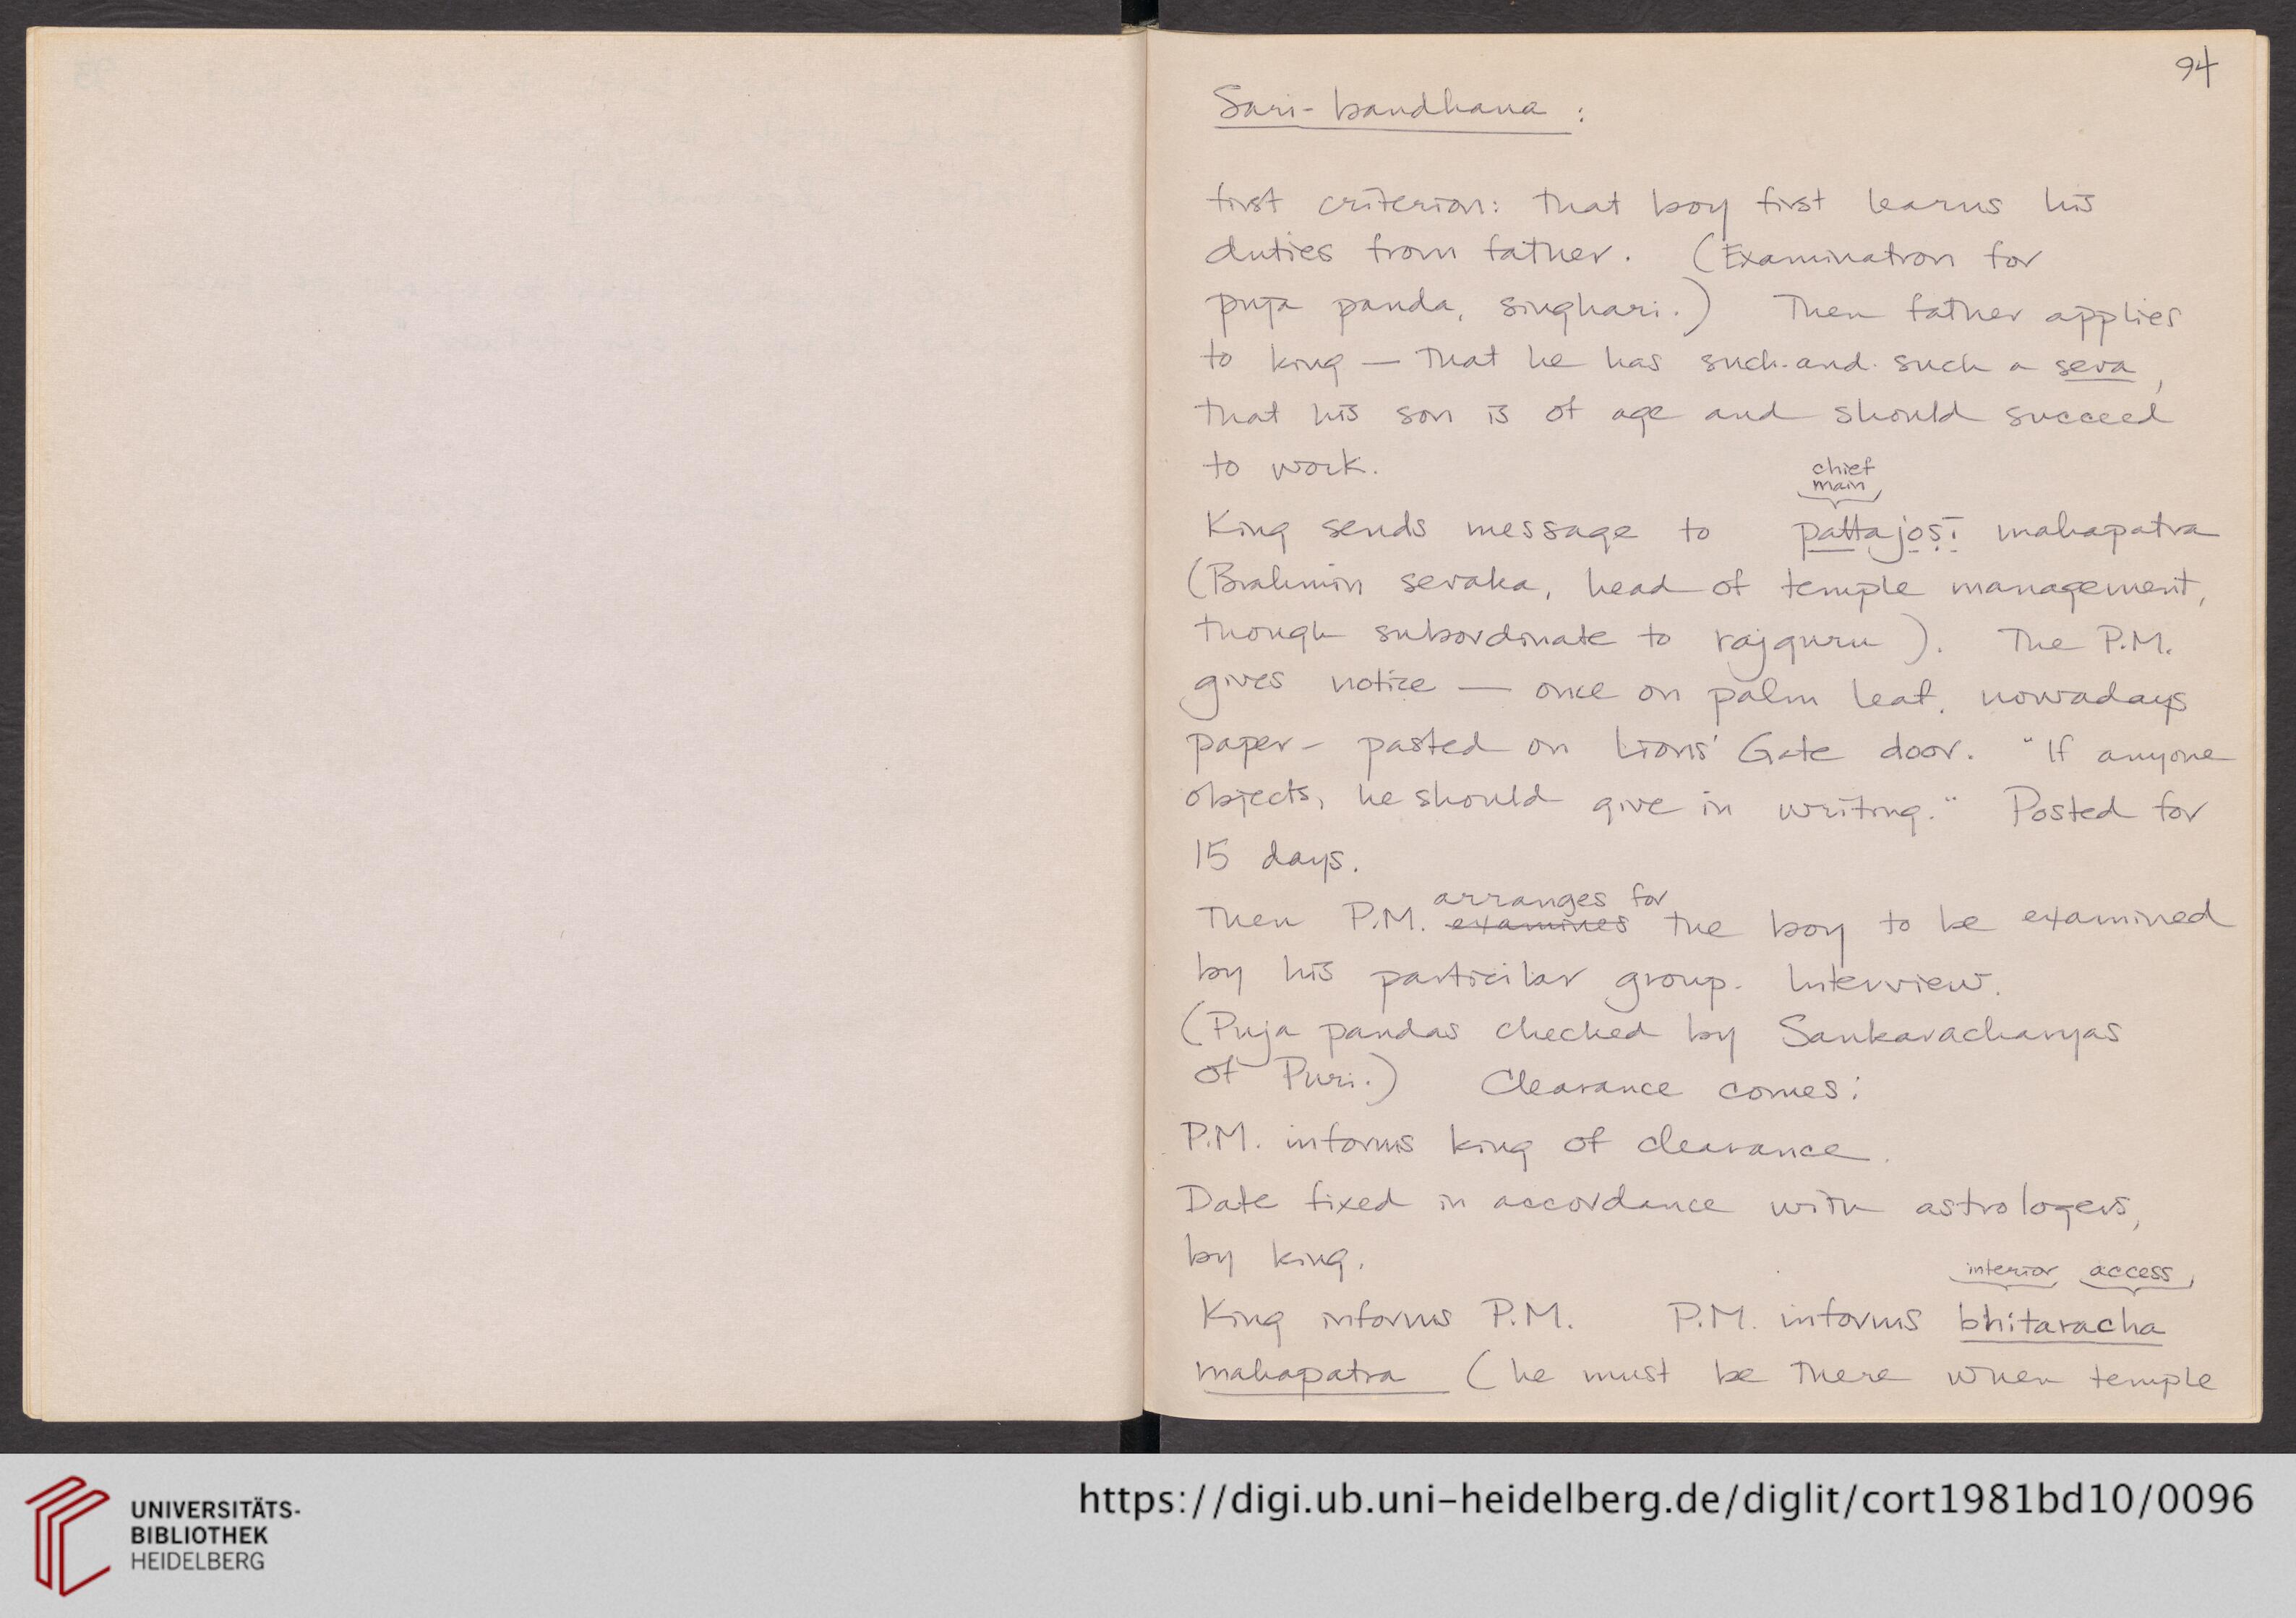 94
Sari-bandhana :
first criterion: that boy first learns his
duties from father. (Examination for
puja panda, singhari.) Then father applies
to king — that he has such-and-such a seva,
that his son is of age and should succeed
to work.
chief
main
King sends message to pattajoṣī mahapatra
(Brahmin sevaka, head of temple management,
though subordinate to rajguru). The P.M.
gives notice — once on palm leaf, nowadays
paper - pasted on Lions' Gate door. "If anyone
objects, he should give in writing." Posted for
15 days.
arranges for
Then P.M. examines the boy to be examined
by his particilar group. Interview.
(Puja pandas checked by Sankaracharyas
of Puri.) Clearance comes:
P.M. informs king of clearance.
Date fixed in accordance with astrologers,
by king.
interior access
King informs P.M. P.M. informs bhitaracha
mahapatra (he must be there when temple
UNIVERSITÄTS-
BIBLIOTHEK
HEIDELBERG
https://digi.ub.uni-heidelberg.de/diglit/cort1981bd10/0096